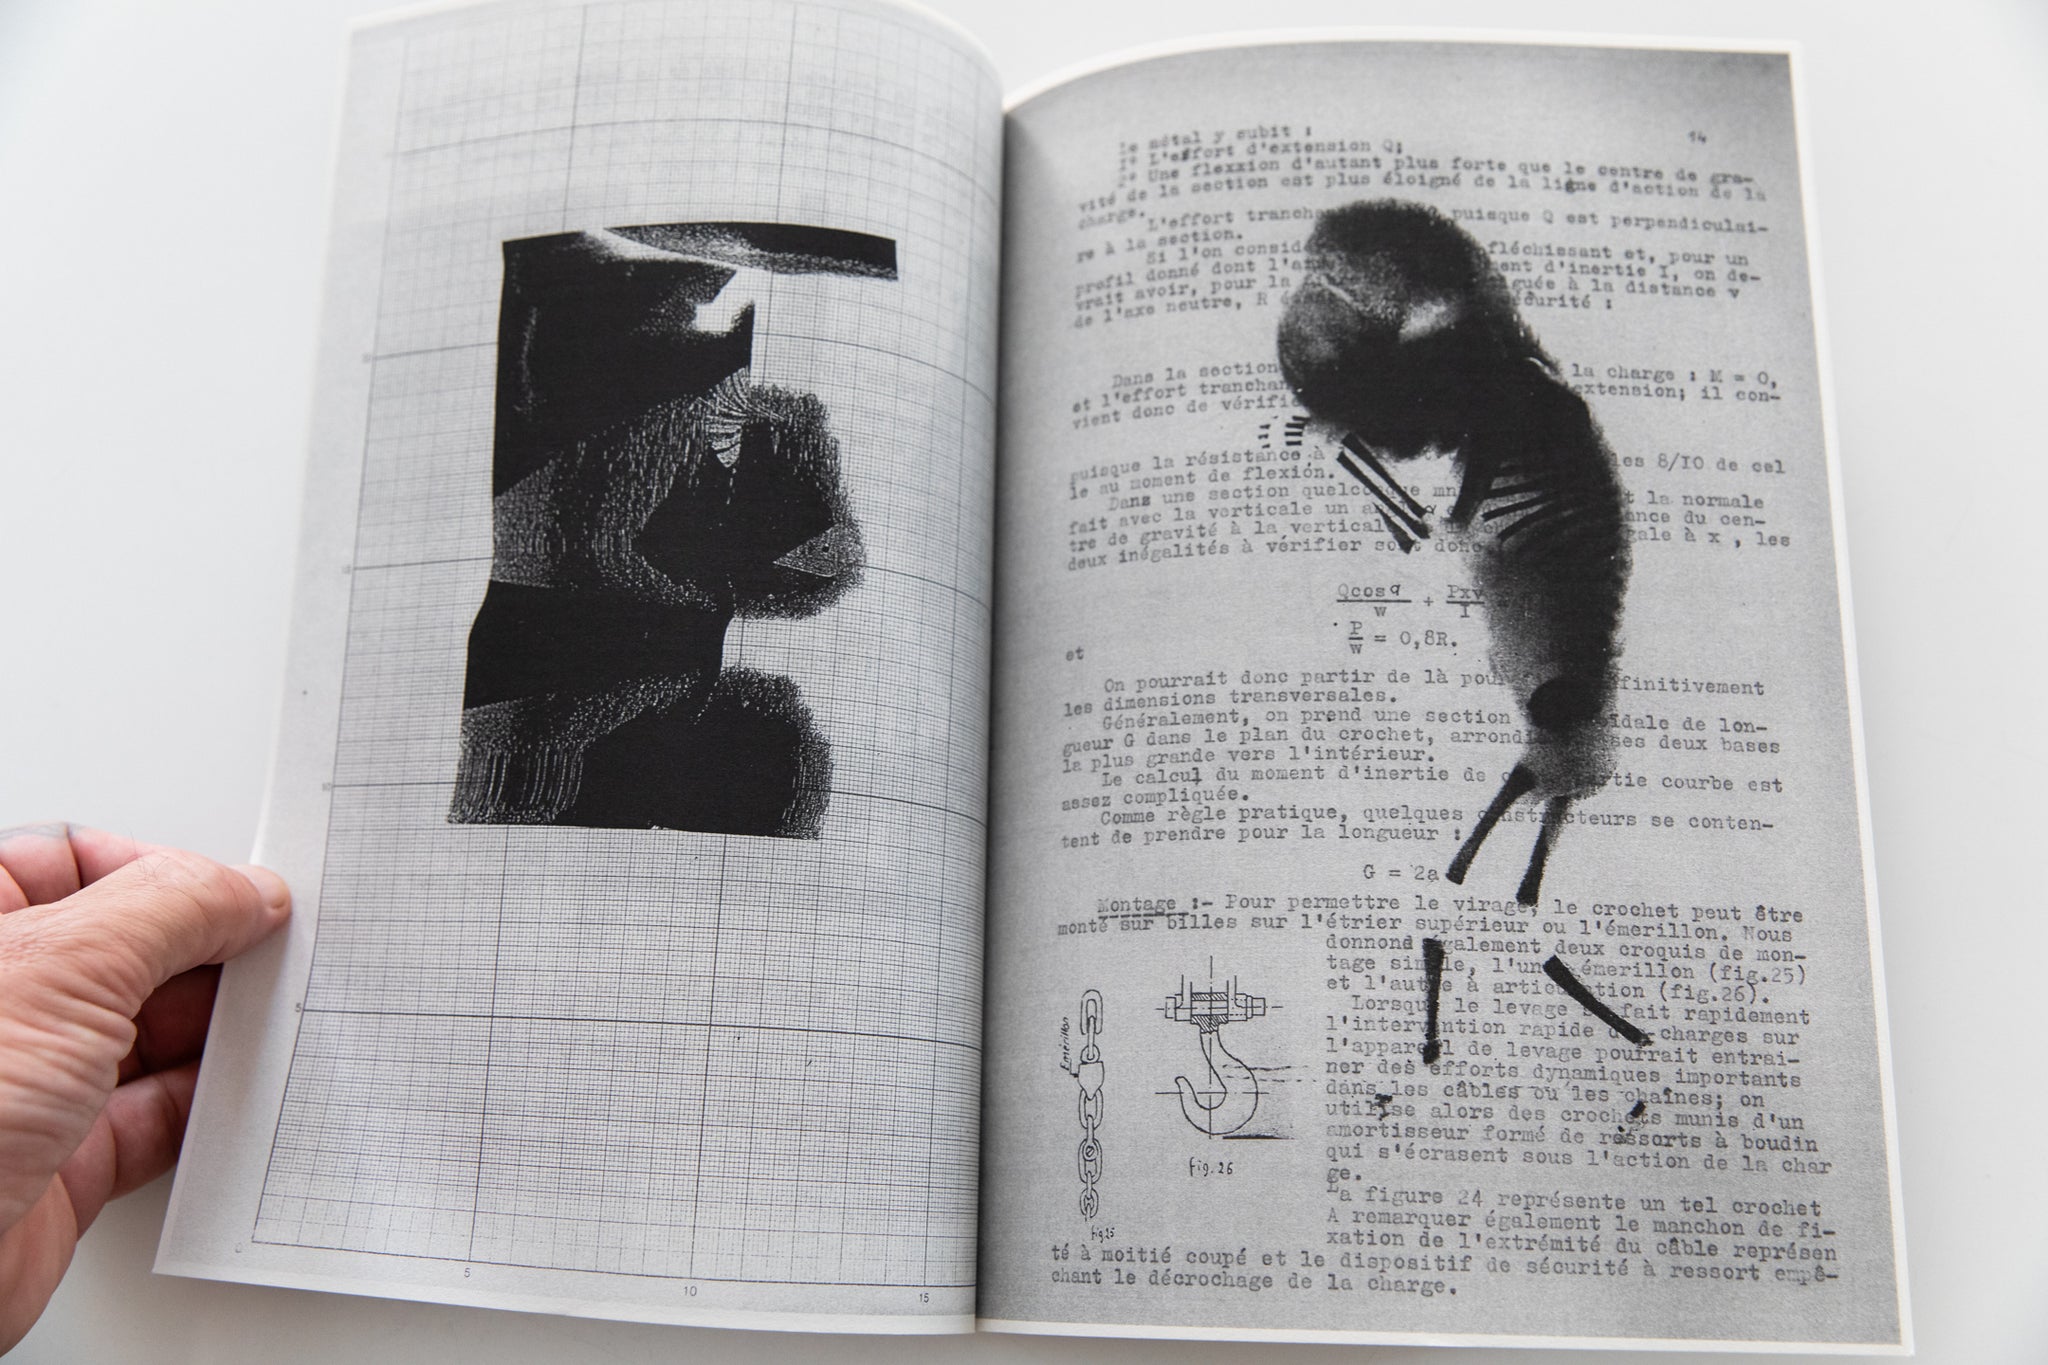 5
10
15
5
10
15
14
Le métal y subit :
1° L'effort d'extension Q;
2° Une flexxion d'autant plus forte que le centre de gra-
vité de la section est plus éloigné de la ligne d'action de la
charge.
L'effort trancha puisque Q est perpendiculai-
re à la section.
Si l'on considè fléchissant et, pour un
profil donné dont l'a d'inertie I, on de-
vrait avoir, pour la à la distance v
de l'axe neutre, R
Dans la section la charge : M = O,
et l'effort tranchan extension; il con-
vient donc de vérifie
puisque la résistance à les 8/IO de cel
le au moment de flexion.
Dans une section quelconque mn la normale
fait avec la verticale un du cen-
tre de gravité à la vertical à x , les
deux inégalités à vérifier sont donc
Qcosα/w + Pxv/I
P/w = 0,8R.
et
On pourrait donc partir de là pour finitivement
les dimensions transversales.
Généralement, on prend une section idale de lon-
gueur G dans le plan du crochet, arrondi ses deux bases
la plus grande vers l'intérieur.
Le calcul du moment d'inertie de partie courbe est
assez compliquée.
Comme règle pratique, quelques constructeurs se conten-
tent de prendre pour la longueur :
G = 2a
Montage :- Pour permettre le virage, le crochet peut être
monté sur billes sur l'étrier supérieur ou l'émerillon. Nous
donnons également deux croquis de mon-
tage simple, l'un émerillon (fig.25)
et l'autre à articulation (fig.26).
Lorsque le levage se fait rapidement
l'intervention rapide des charges sur
l'appareil de levage pourrait entrai-
ner des efforts dynamiques importants
dans les câbles ou les chaînes; on
utilise alors des crochets munis d'un
amortisseur formé de ressorts à boudin
qui s'écrasent sous l'action de la char
ge.
La figure 24 représente un tel crochet
A remarquer également le manchon de fi-
xation de l'extrémité du câble représen
té à moitié coupé et le dispositif de sécurité à ressort empê-
chant le décrochage de la charge.
Emérillon
Fig.25
Fig.26